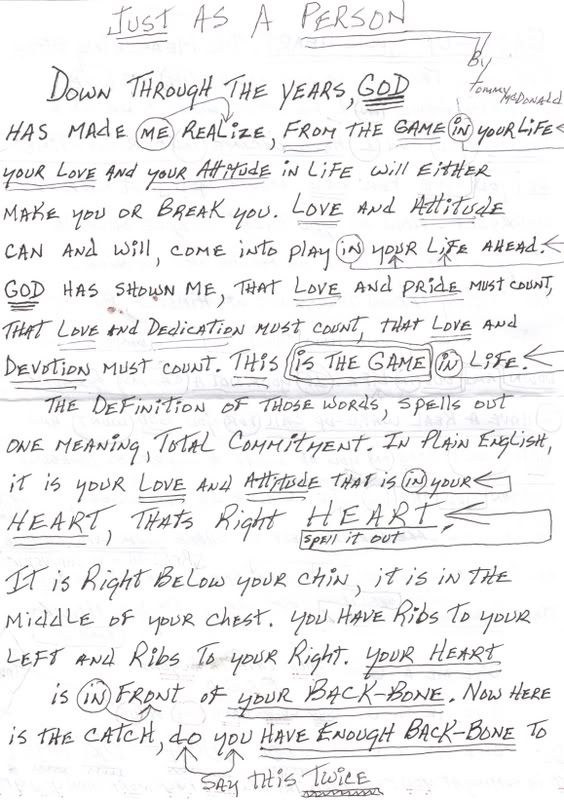 JUST AS A PERSON
By
Tommy McDonald
DOWN THROUGH THE YEARS, GOD
HAS MADE ME REALIZE, FROM THE GAME IN YOUR LIFE
YOUR LOVE AND YOUR ATTITUDE IN LIFE WILL EITHER
MAKE YOU OR BREAK YOU. LOVE AND ATTITUDE
CAN AND WILL, COME INTO PLAY IN YOUR LIFE AHEAD.
GOD HAS SHOWN ME, THAT LOVE AND PRIDE MUST COUNT,
THAT LOVE AND DEDICATION MUST COUNT, THAT LOVE AND
DEVOTION MUST COUNT. THIS IS THE GAME IN LIFE.
THE DEFINITION OF THOSE WORDS, SPELLS OUT
ONE MEANING, TOTAL COMMITMENT. IN PLAIN ENGLISH,
IT IS YOUR LOVE AND ATTITUDE THAT IS IN YOUR
HEART, THATS RIGHT HEART.
SPELL IT OUT
IT IS RIGHT BELOW YOUR CHIN, IT IS IN THE
MIDDLE OF YOUR CHEST. YOU HAVE RIBS TO YOUR
LEFT AND RIBS TO YOUR RIGHT. YOUR HEART
IS IN FRONT OF YOUR BACK-BONE. NOW HERE
IS THE CATCH, DO YOU HAVE ENOUGH BACK-BONE TO
SAY THIS TWICE